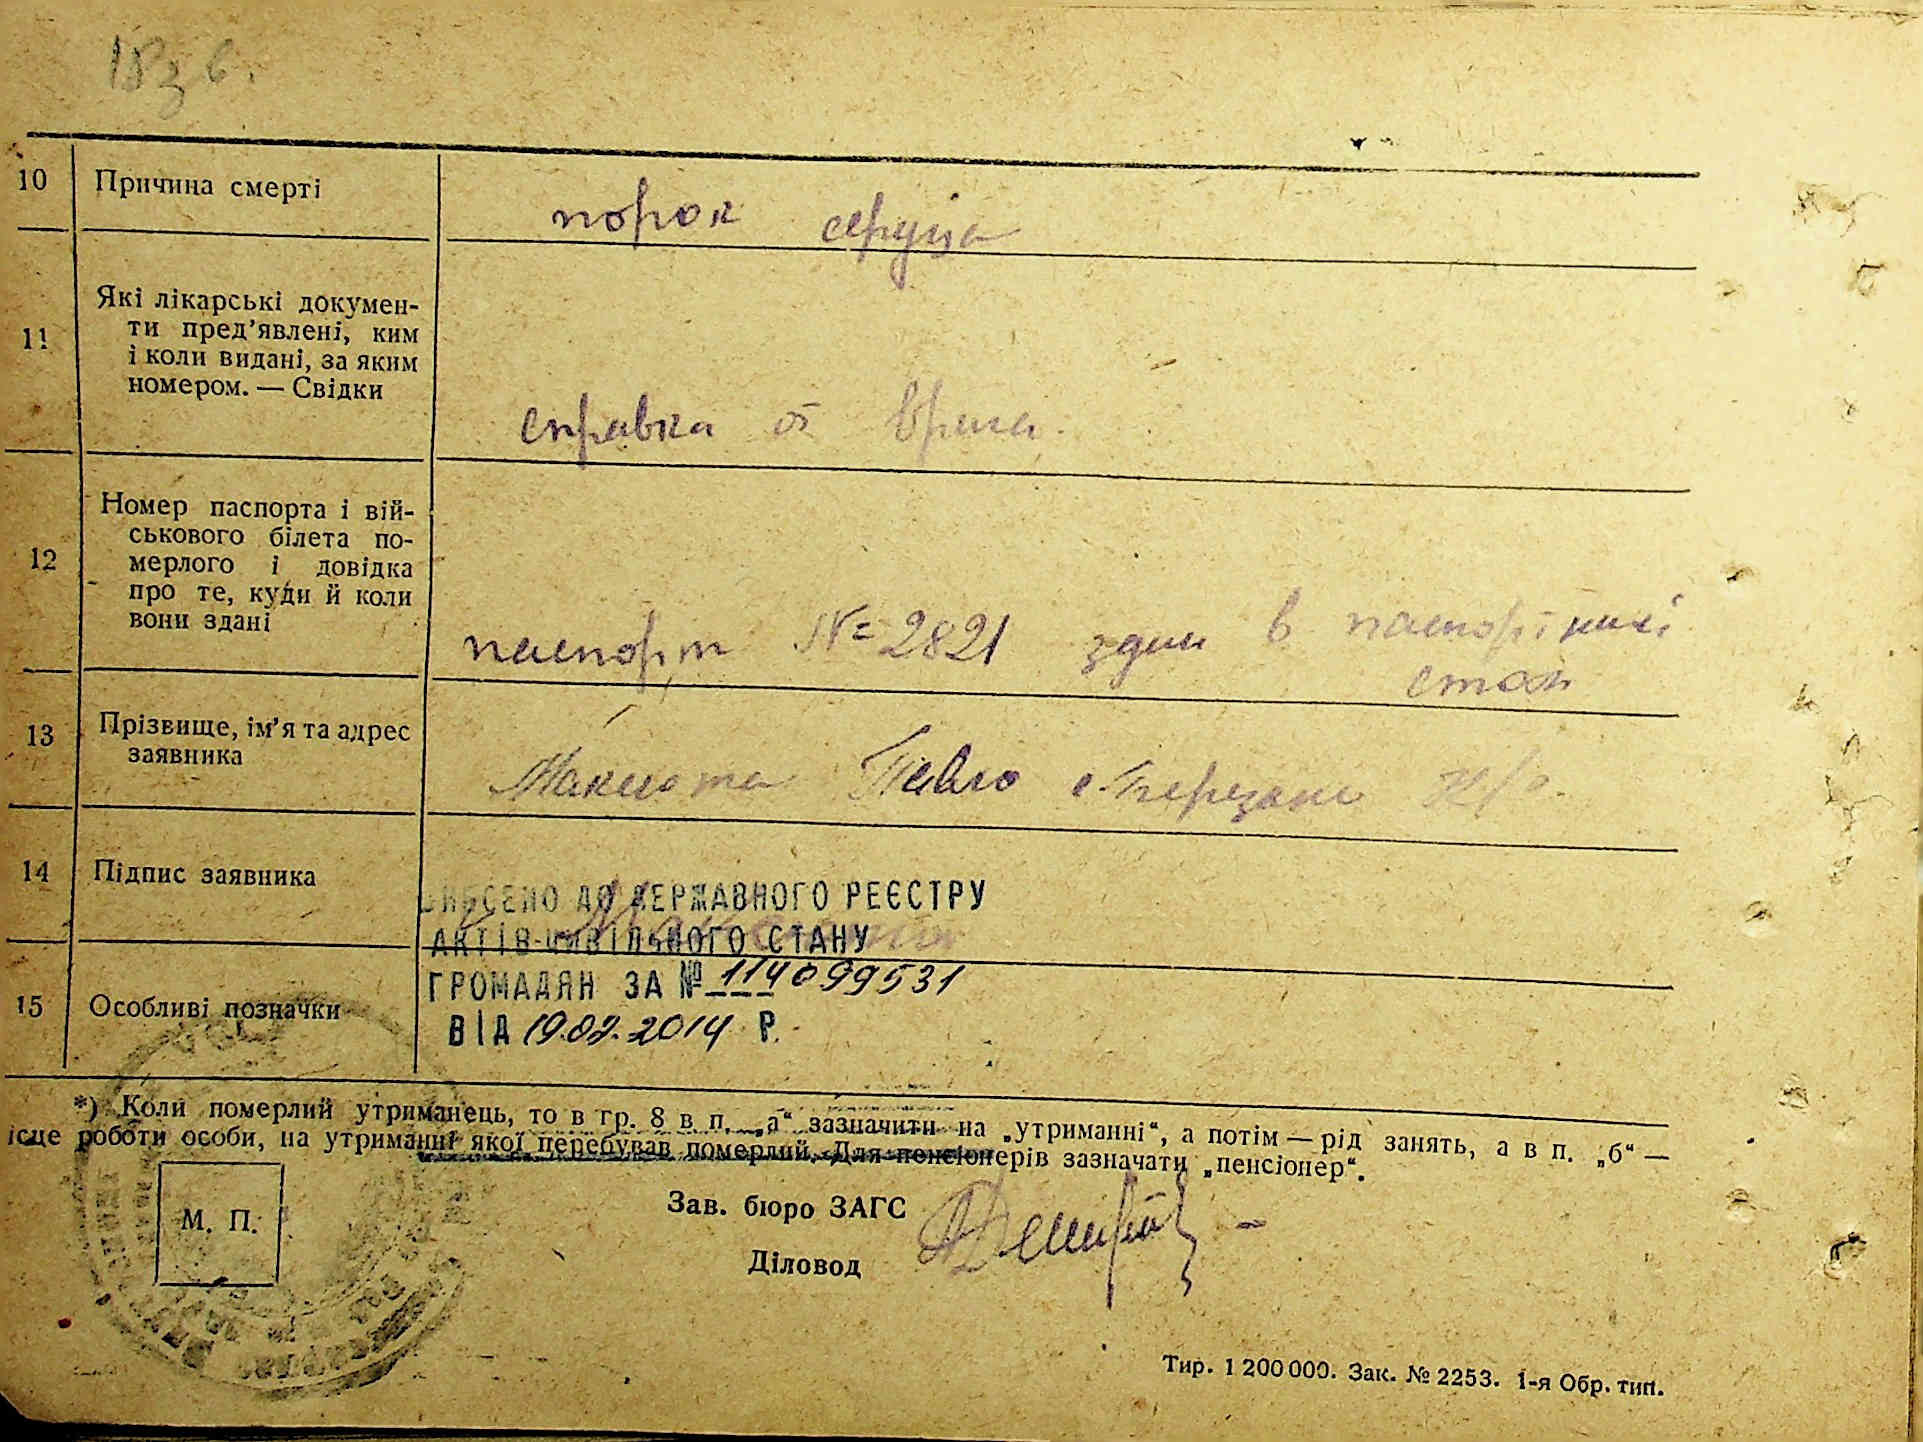 10 Причина смерті порок серуца
11 Які лікарські докумен-
ти пред’явлені, ким
і коли видані, за яким
номером. — Свідки
справка от врача.
12 Номер паспорта і вій-
ськового білета по-
мерлого і довідка
про те, куди й коли
вони здані
паспорт № 2821 здан в паспортний
стол
13 Прізвище, ім’я та адрес
заявника
Павло
14 Підпис заявника
ВНЕСЕНО ДО ДЕРЖАВНОГО РЕЄСТРУ
АКТІВ ЦИВІЛЬНОГО СТАНУ
ГРОМАДЯН ЗА № 114099531
15 Особливі позначки
ВІД 19.02.2014 Р.
*) Коли померлий утриманець, то в гр. 8 в п. „а“ зазначити на „утриманні“, а потім — рід занять, а в п. „б“ —
ісце роботи особи, на утриманні якої перебував померлий. Для пенсіонерів зазначати „пенсіонер“.
М. П.
Зав. бюро ЗАГС
Діловод
Тир. 1 200 000. Зак. № 2253. 1-я Обр. тип.